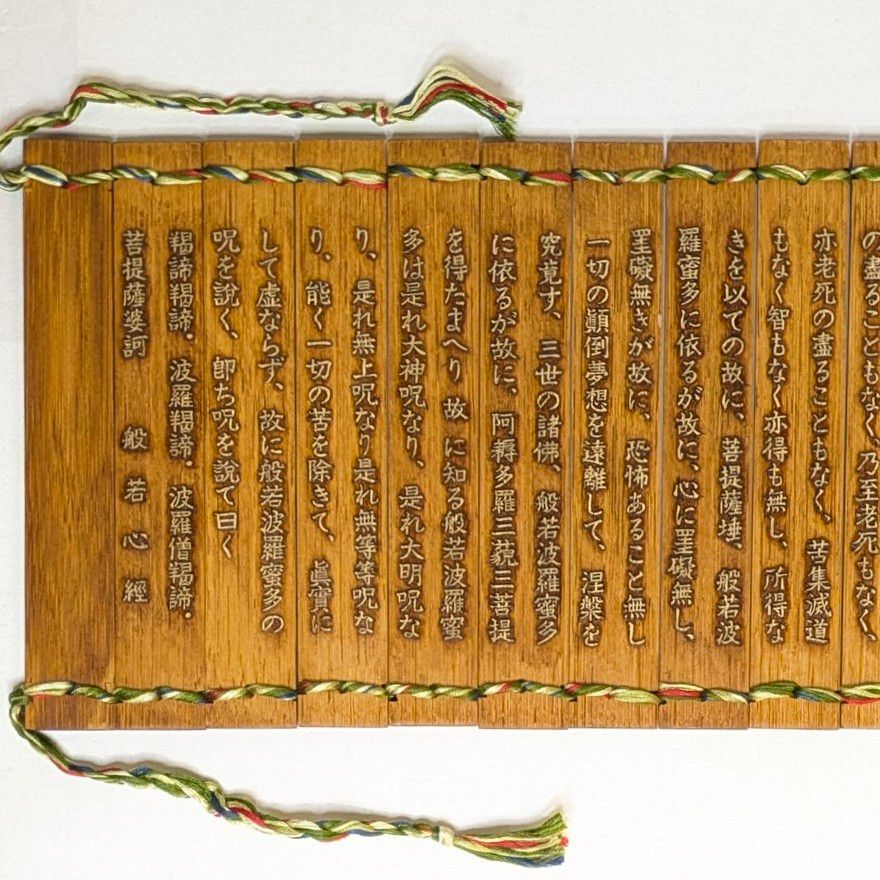 の盡ることもなく、乃至老死もなく、
亦老死の盡ることもなく、苦集滅道
もなく智もなく亦得も無し、所得な
きを以ての故に、菩提薩埵、般若波
羅蜜多に依るが故に、心に罣礙無し、
罣礙無きが故に、恐怖あること無し
一切の顚倒夢想を遠離して、涅槃を
究竟す、三世の諸佛、般若波羅蜜多
に依るが故に、阿耨多羅三藐三菩提
を得たまへり 故に知る般若波羅蜜
多は是れ大神呪なり、是れ大明呪な
り、是れ無上呪なり是れ無等等呪な
り、能く一切の苦を除きて、眞實に
して虛ならず、故に般若波羅蜜多の
呪を說く、卽ち呪を說て曰く
羯諦羯諦．波羅羯諦．波羅僧羯諦．
菩提薩婆訶　般若心經